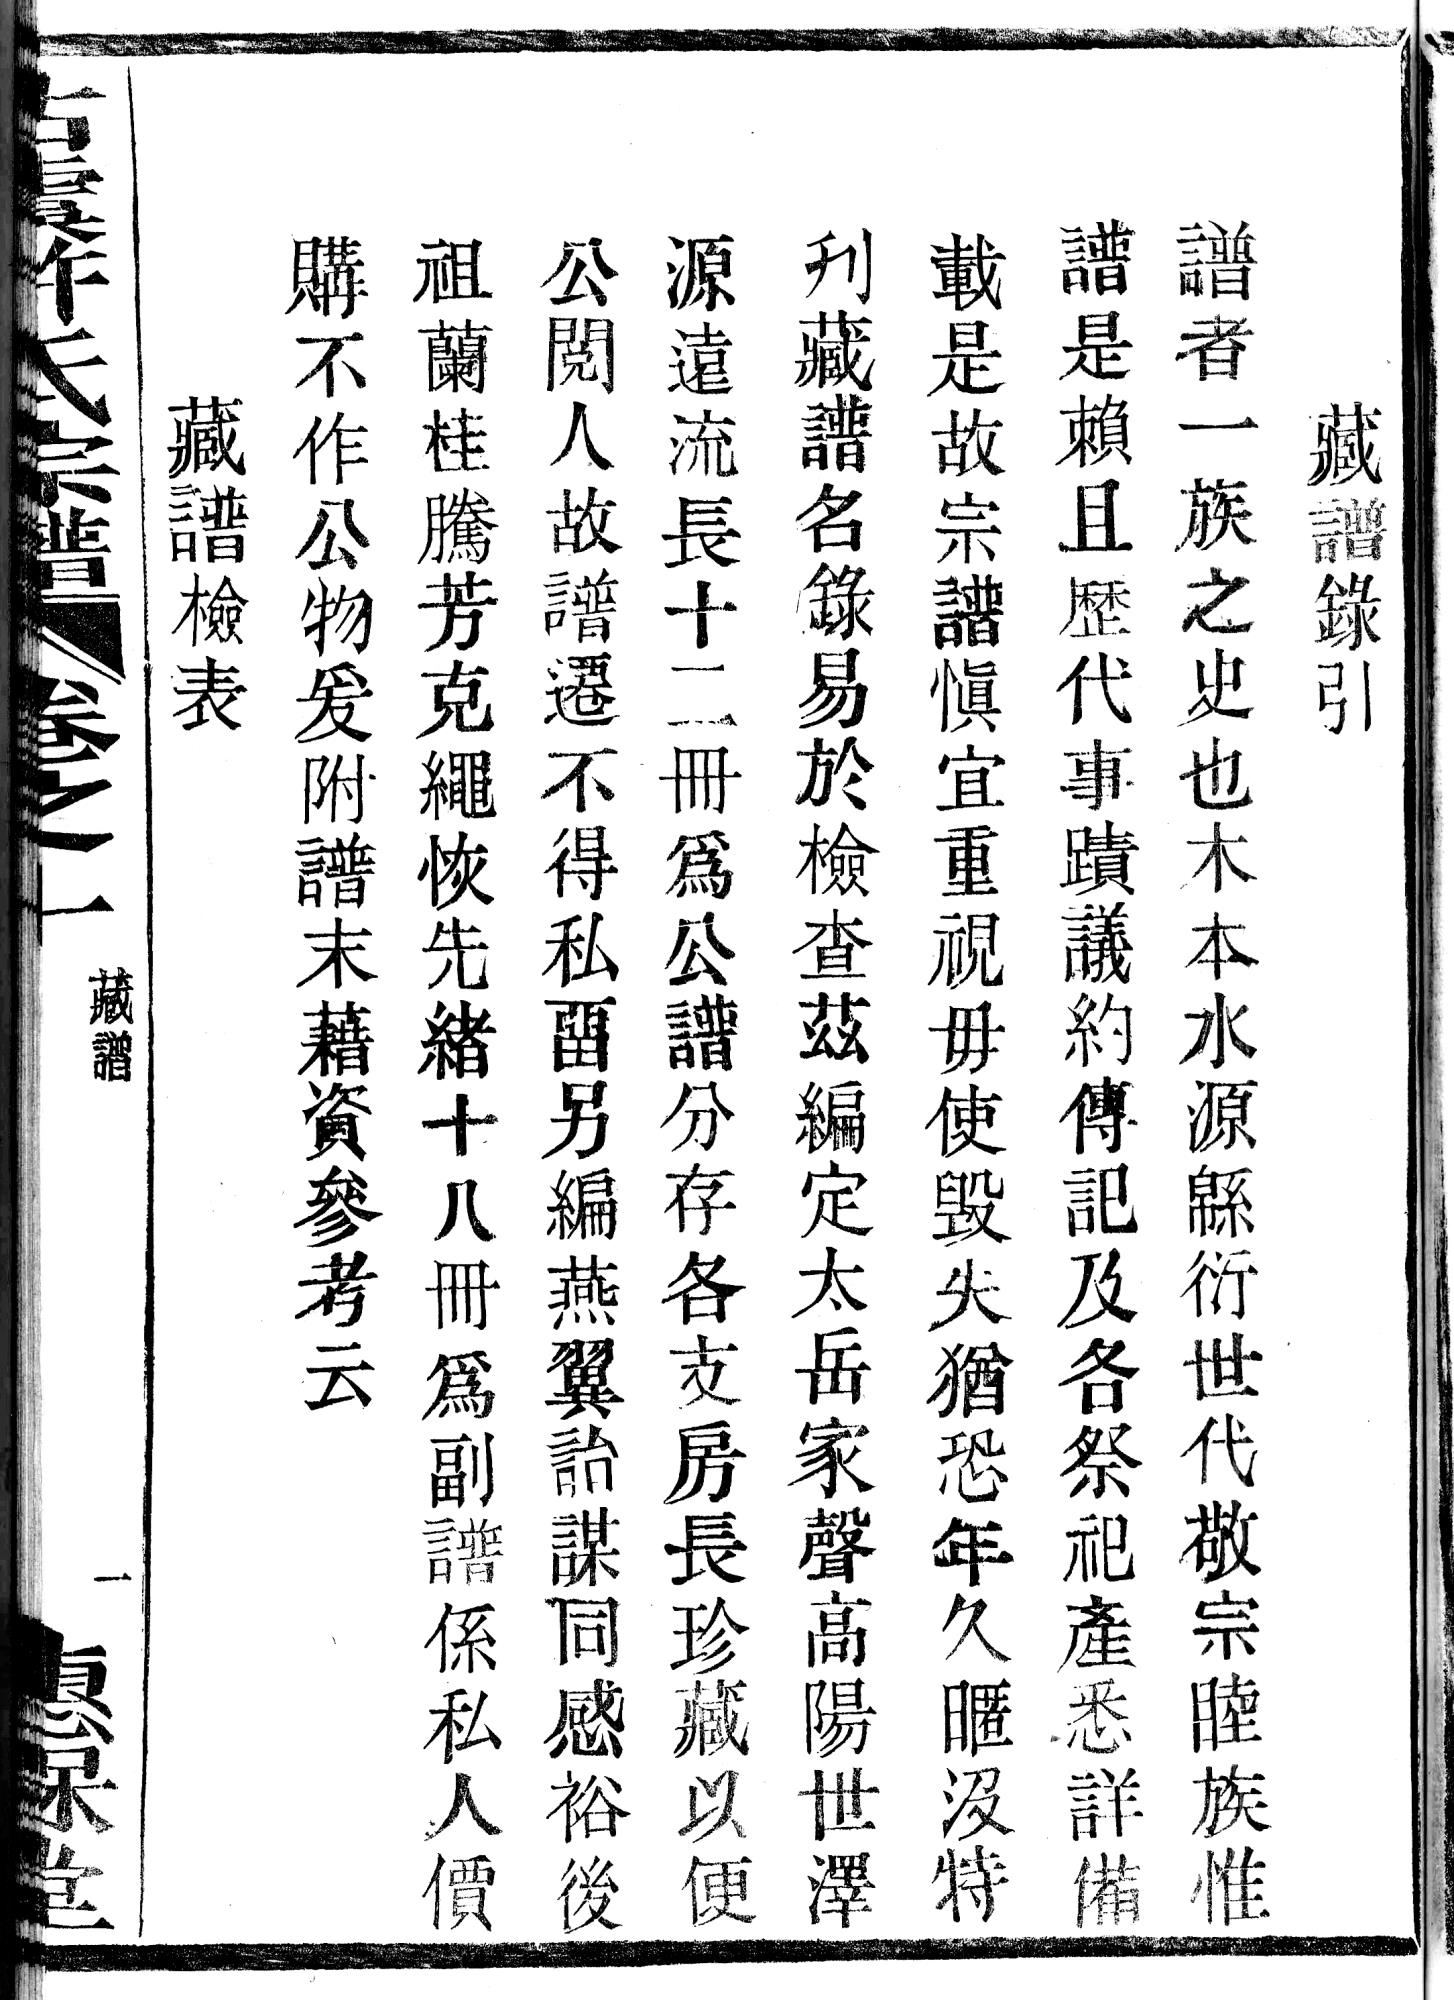 藏譜錄引
譜者一族之史也木本水源緜衍世代敬宗睦族惟
譜是賴且歷代事蹟議約傳記及各祭祀產悉詳備
載是故宗譜愼宜重視毋使毁失猶恐年久暱沒特
刋藏譜名錄易於檢查茲編定太岳家聲高陽世澤
源遠流長十二冊爲公譜分存各支房長珍藏以便
公閱人故譜遷不得私畱另編燕翼詒謀同感裕後
祖蘭桂騰芳克繩恢先緒十八冊爲副譜係私人價
購不作公物爰附譜末藉資參考云
藏譜檢表
氏宗譜 卷之一
藏譜
一
堂